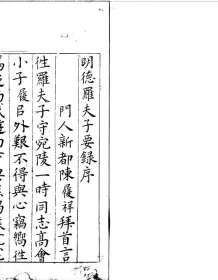 明德羅夫子要錄序
門人新都陳履祥拜首言
徃羅夫子守宛陵一時同志高會
小子履㠯外艱不得與心竊嚮徃